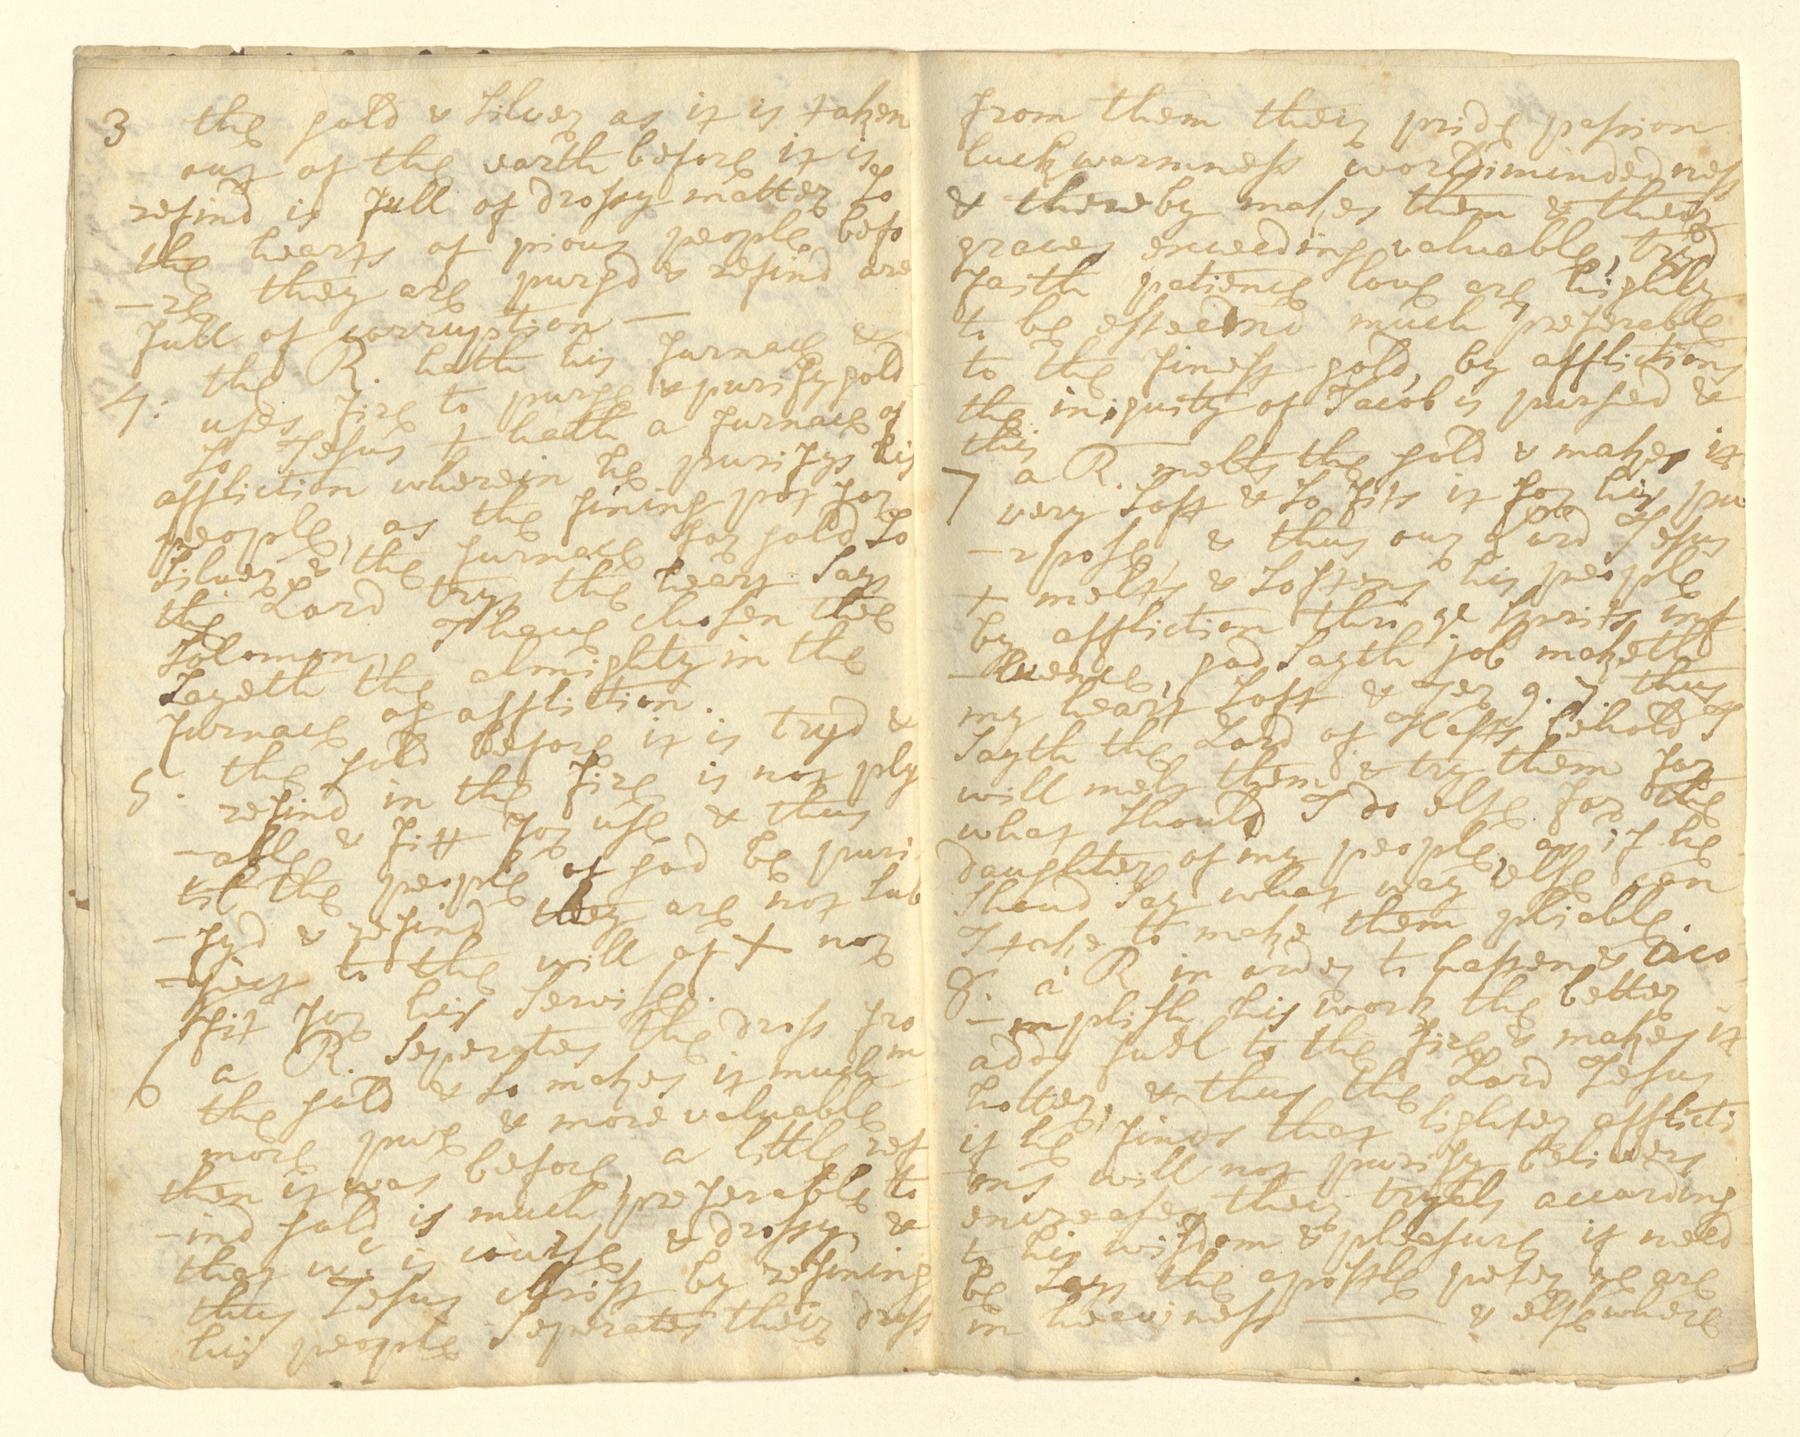 3 the gold & silver as it is taken
out of the earth before it is
refind is full of drossy matter so
the hearts of pious people befo
-re they are purgd & refind are
full of corruption —
4: the R. hath his furnace &
uses fire to purge & purify gold
so Jesus + hath a furnace of
affliction wherein he purifys his
people, as the fining pot for
silver & the furnace for gold so
the Lord trys the heart says
Solomon, I have chosen thee
sayeth the almighty in the
furnace of affliction.
5. the gold before it is tryd &
refind in the fire is not ply
-able & fitt for use & thus
til the people of god be puri
-fyd & refind they are not sub
-ject to the will of + nor
fit for his servise.
6 a R. seperates the dross from
the gold & so makes it much
more pure & more valuable
then it was before, a little ref
-ind gold is much preferable to
that wc is course & drossy, &
thus Jesus christ by refining
his people seperates their dross
from them their pride passion
luckwarmness worldimindedness
& thereby makes them & their
graces exceeding valuable, tryd
faith patience love are highly
to be esteemd much preferable
to the finest gold, by affliction
the iniquity of Jacob is purged &
this
7 a R. melts the gold & makes it
very soft & so fits it for his pu
-rpose, & thus our Lord Jesus
+ melts & softens his people
by affliction thro ye spirits inf
-luence, god sayth job maketh
my heart soft & Jer 9. 7. thus
sayth the Lord of Hosts behold I
will melt them & try them for
what should I do else for the
daughter of my people, as if he
shoud say what way else can
I take to make them pliable.
8. a R in order to hasten & acco
-mplish his work the better
adds fuel to the fire & makes it
hotter, & thus the Lord Jesus
if he finds that lighter afflicti
ons will not purify belivers
encreases their tryals according
to his wisdom & pleasure if need
be says the apostle peter ye are
in heaviness —— & elsewhere